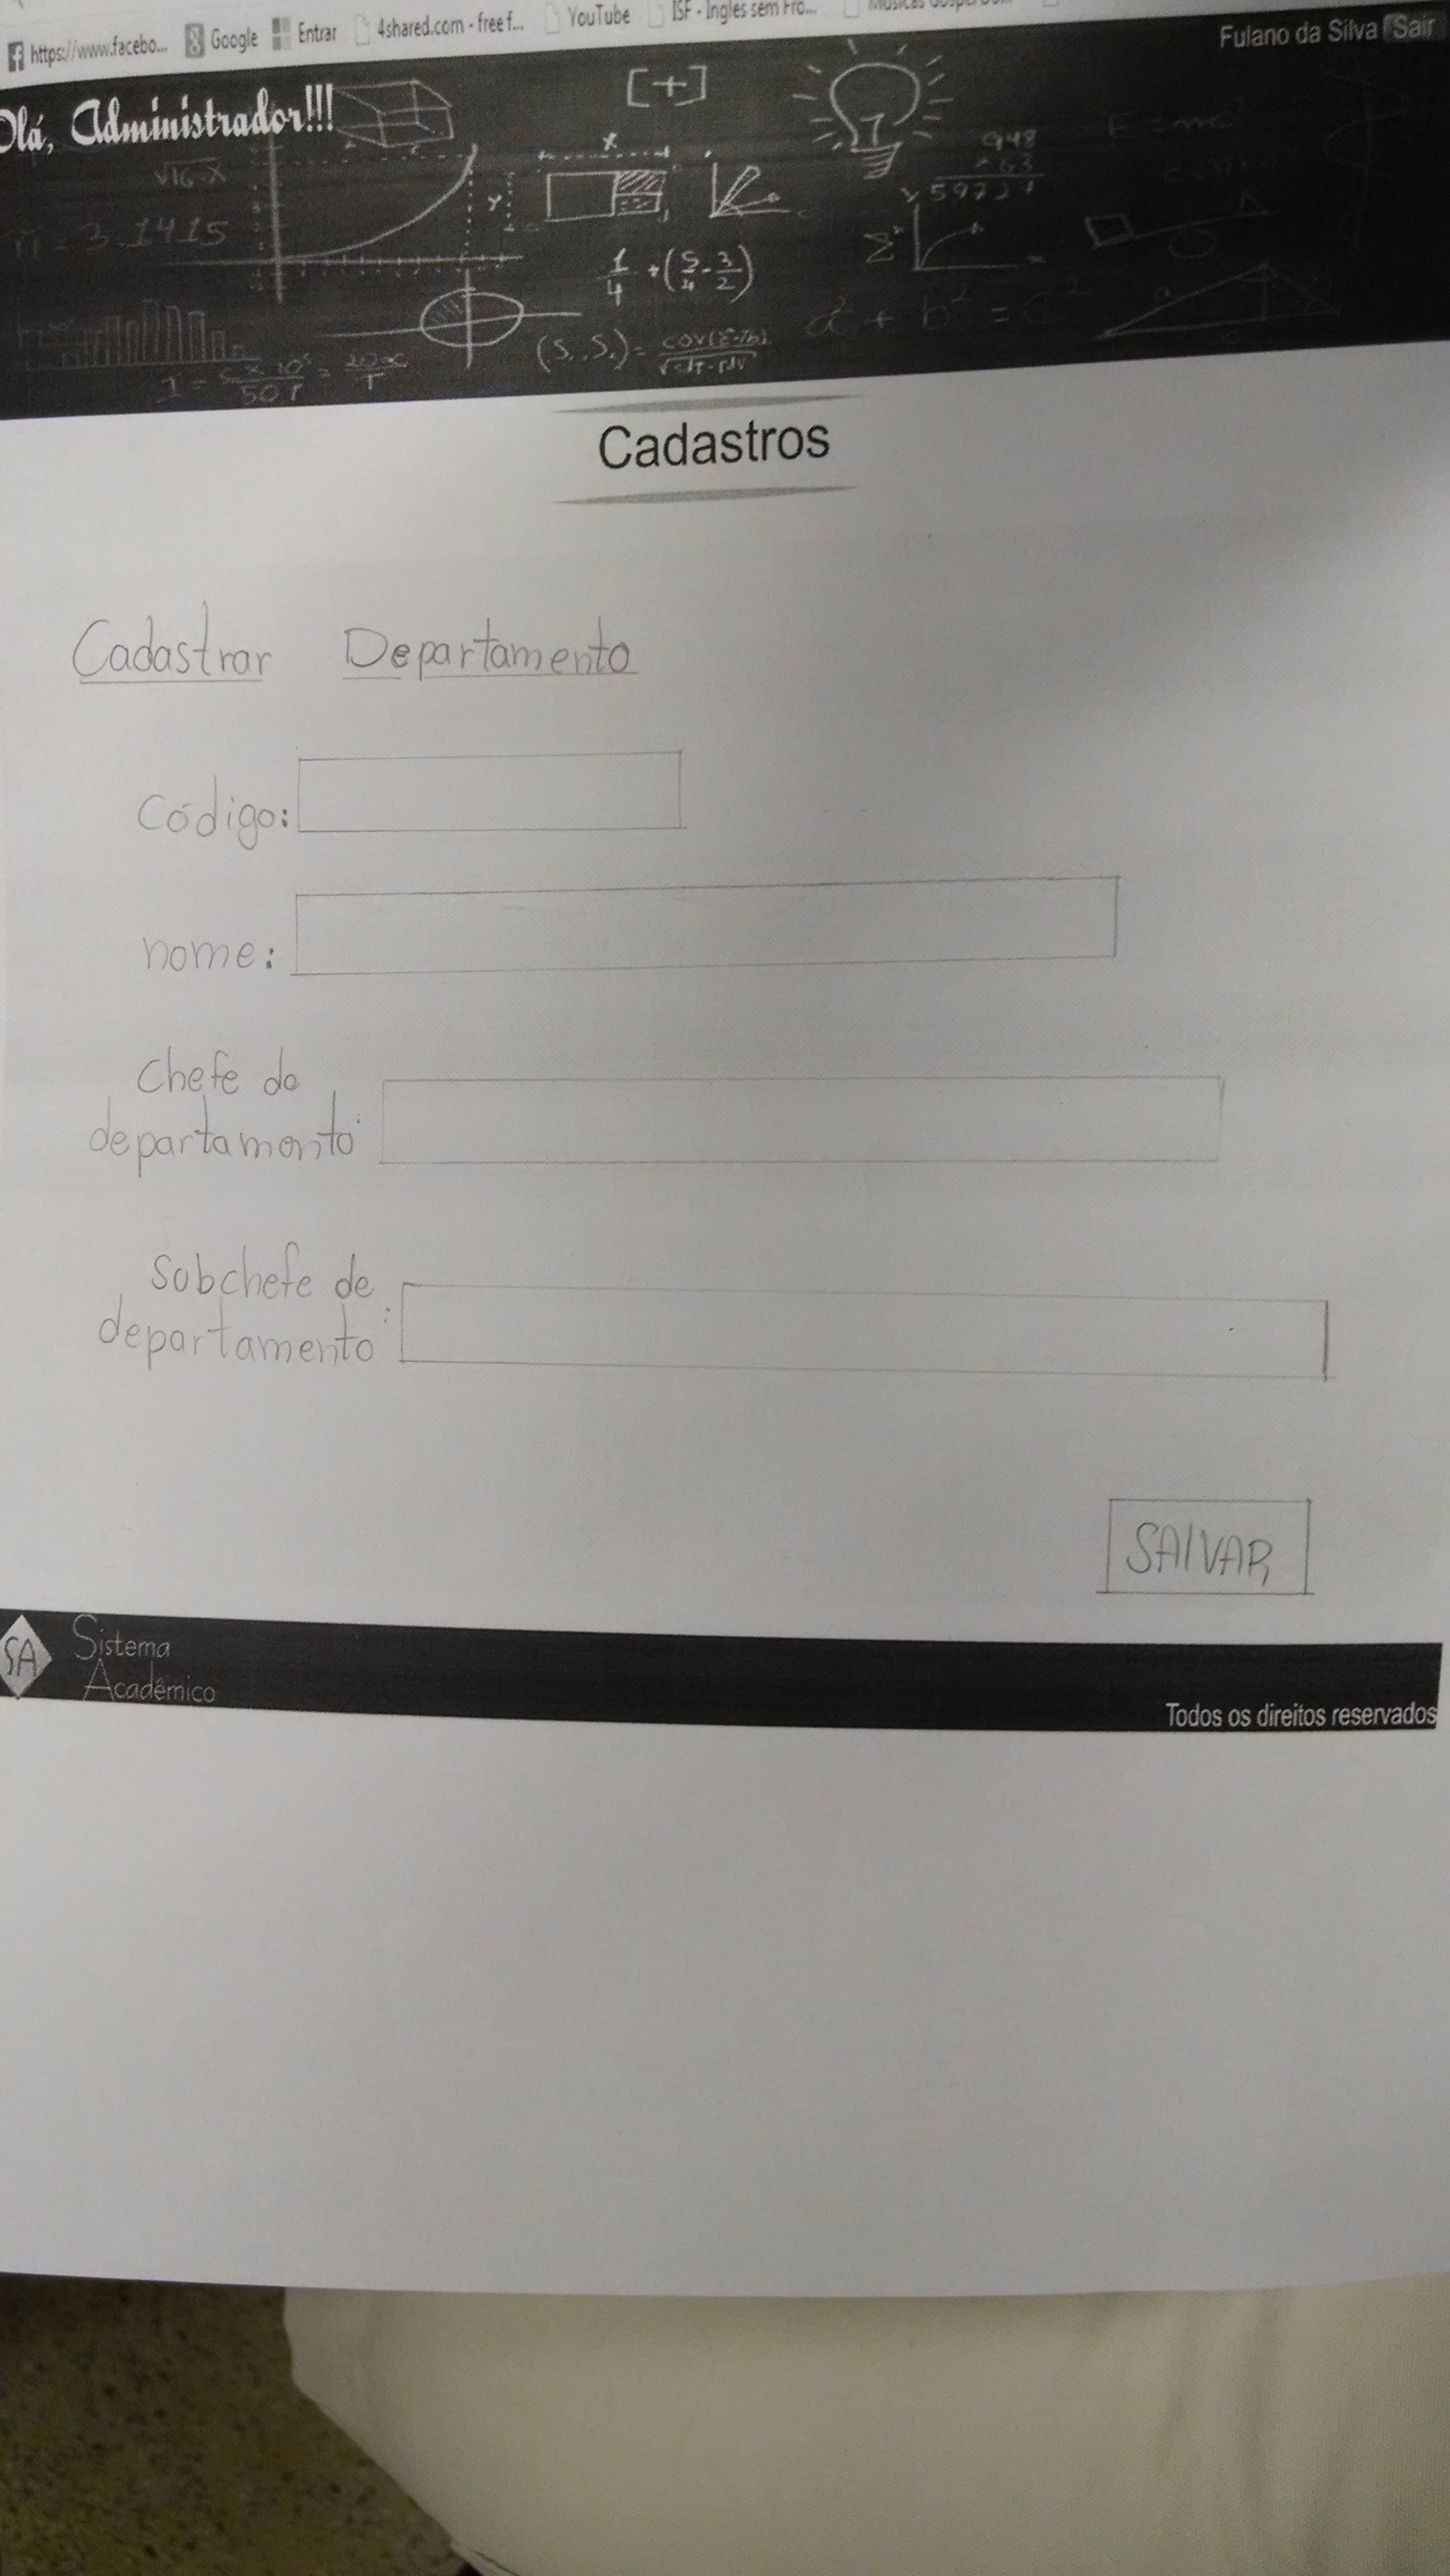 https://www.facebo... Google Entrar 4shared.com - free f... YouTube ISF - Ingles sem Fro...
Fulano da Silva Sair
Olá, Administrador!!!
[+]
√16.x
π = 3.1415
x
y
948
× 63
1/4 + (5/4 - 3/2)
a² + b² = c²
Cadastros
Cadastrar Departamento
Código:
nome:
Chefe de
departamento:
Subchefe de
departamento:
SALVAR
SA Sistema
Acadêmico
Todos os direitos reservados